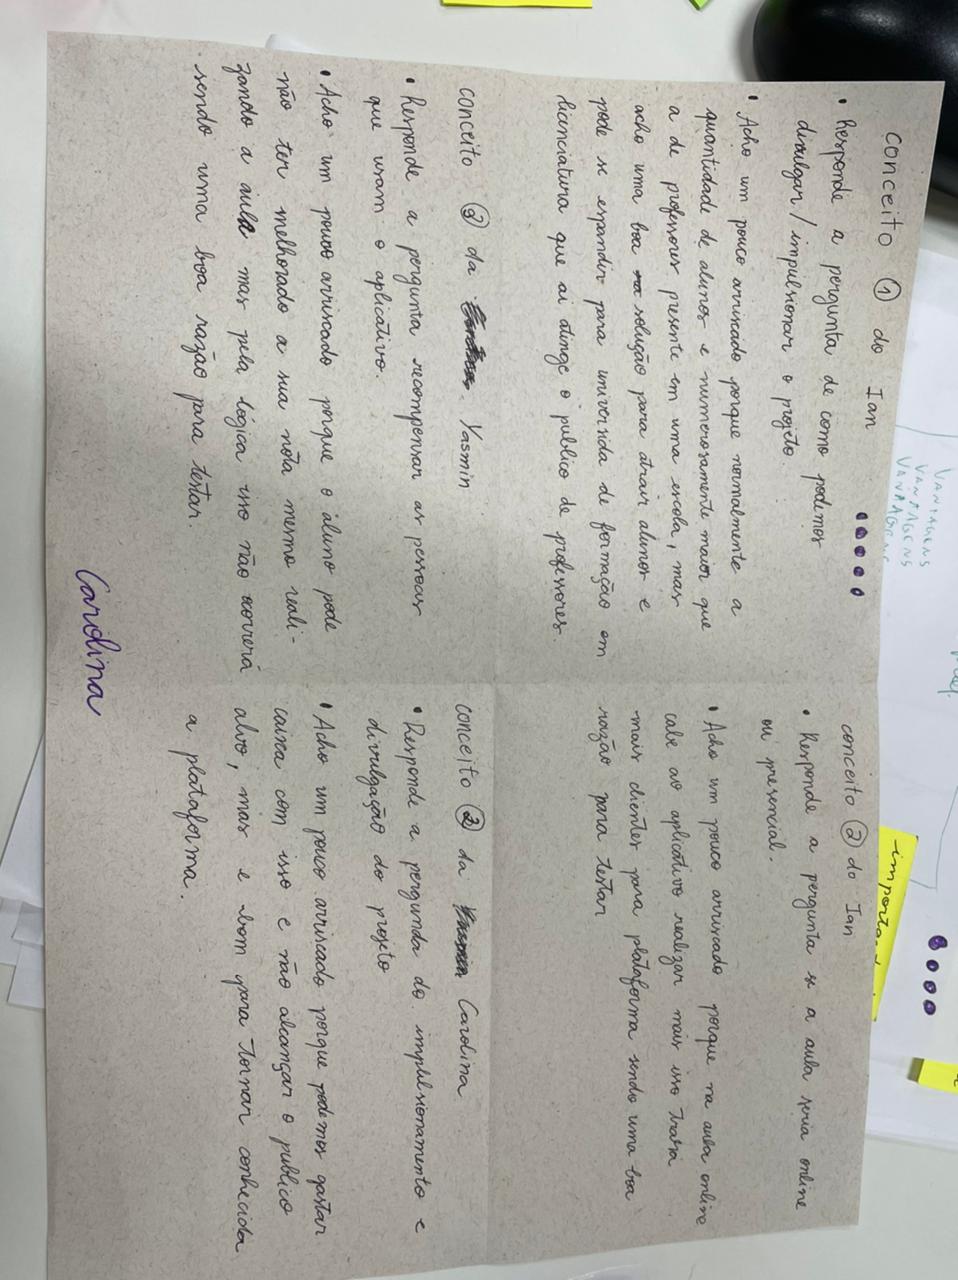 VANTAGENS
VANTAGENS
VANTAGENS
conceito 1 do Ian
• Responde a pergunta de como podemos
divulgar/impulsionar o projeto.
• Acho um pouco arriscado porque normalmente a
quantidade de alunos e numerosamente maior que
a de professores presente em uma escola, mas
acho uma boa solução para atrair alunos e
pode se espandir para universida de formação em
licenciatura que ai atinge o publico de professores.
conceito 2 do Ian
• Responde a pergunta se a aula seria online
ou presencial.
• Acho um pouco arriscado porque na aula online
cabe ao aplicativo realizar mais isso traria
mais clientes para plataforma sendo uma boa
razão para testar
conceito da Yasmin
• Responde a pergunta recompensar as pessoas
que usam o aplicativo.
• Acho um pouco arriscado porque o aluno pode
não ter melhorado a sua nota mesmo reali-
zando a aula mas pela lógica isso não ocorrerá
sendo uma boa razão para testar.
conceito 2 da Carolina
• Responde a pergunda do implulsionamento e
divulgação do projeto
• Acho um pouco arriscado porque podemos gastar
caixa com isso e não alcançar o publico
alvo, mas e bom para tornar conhecida
a plataforma.
Carolina